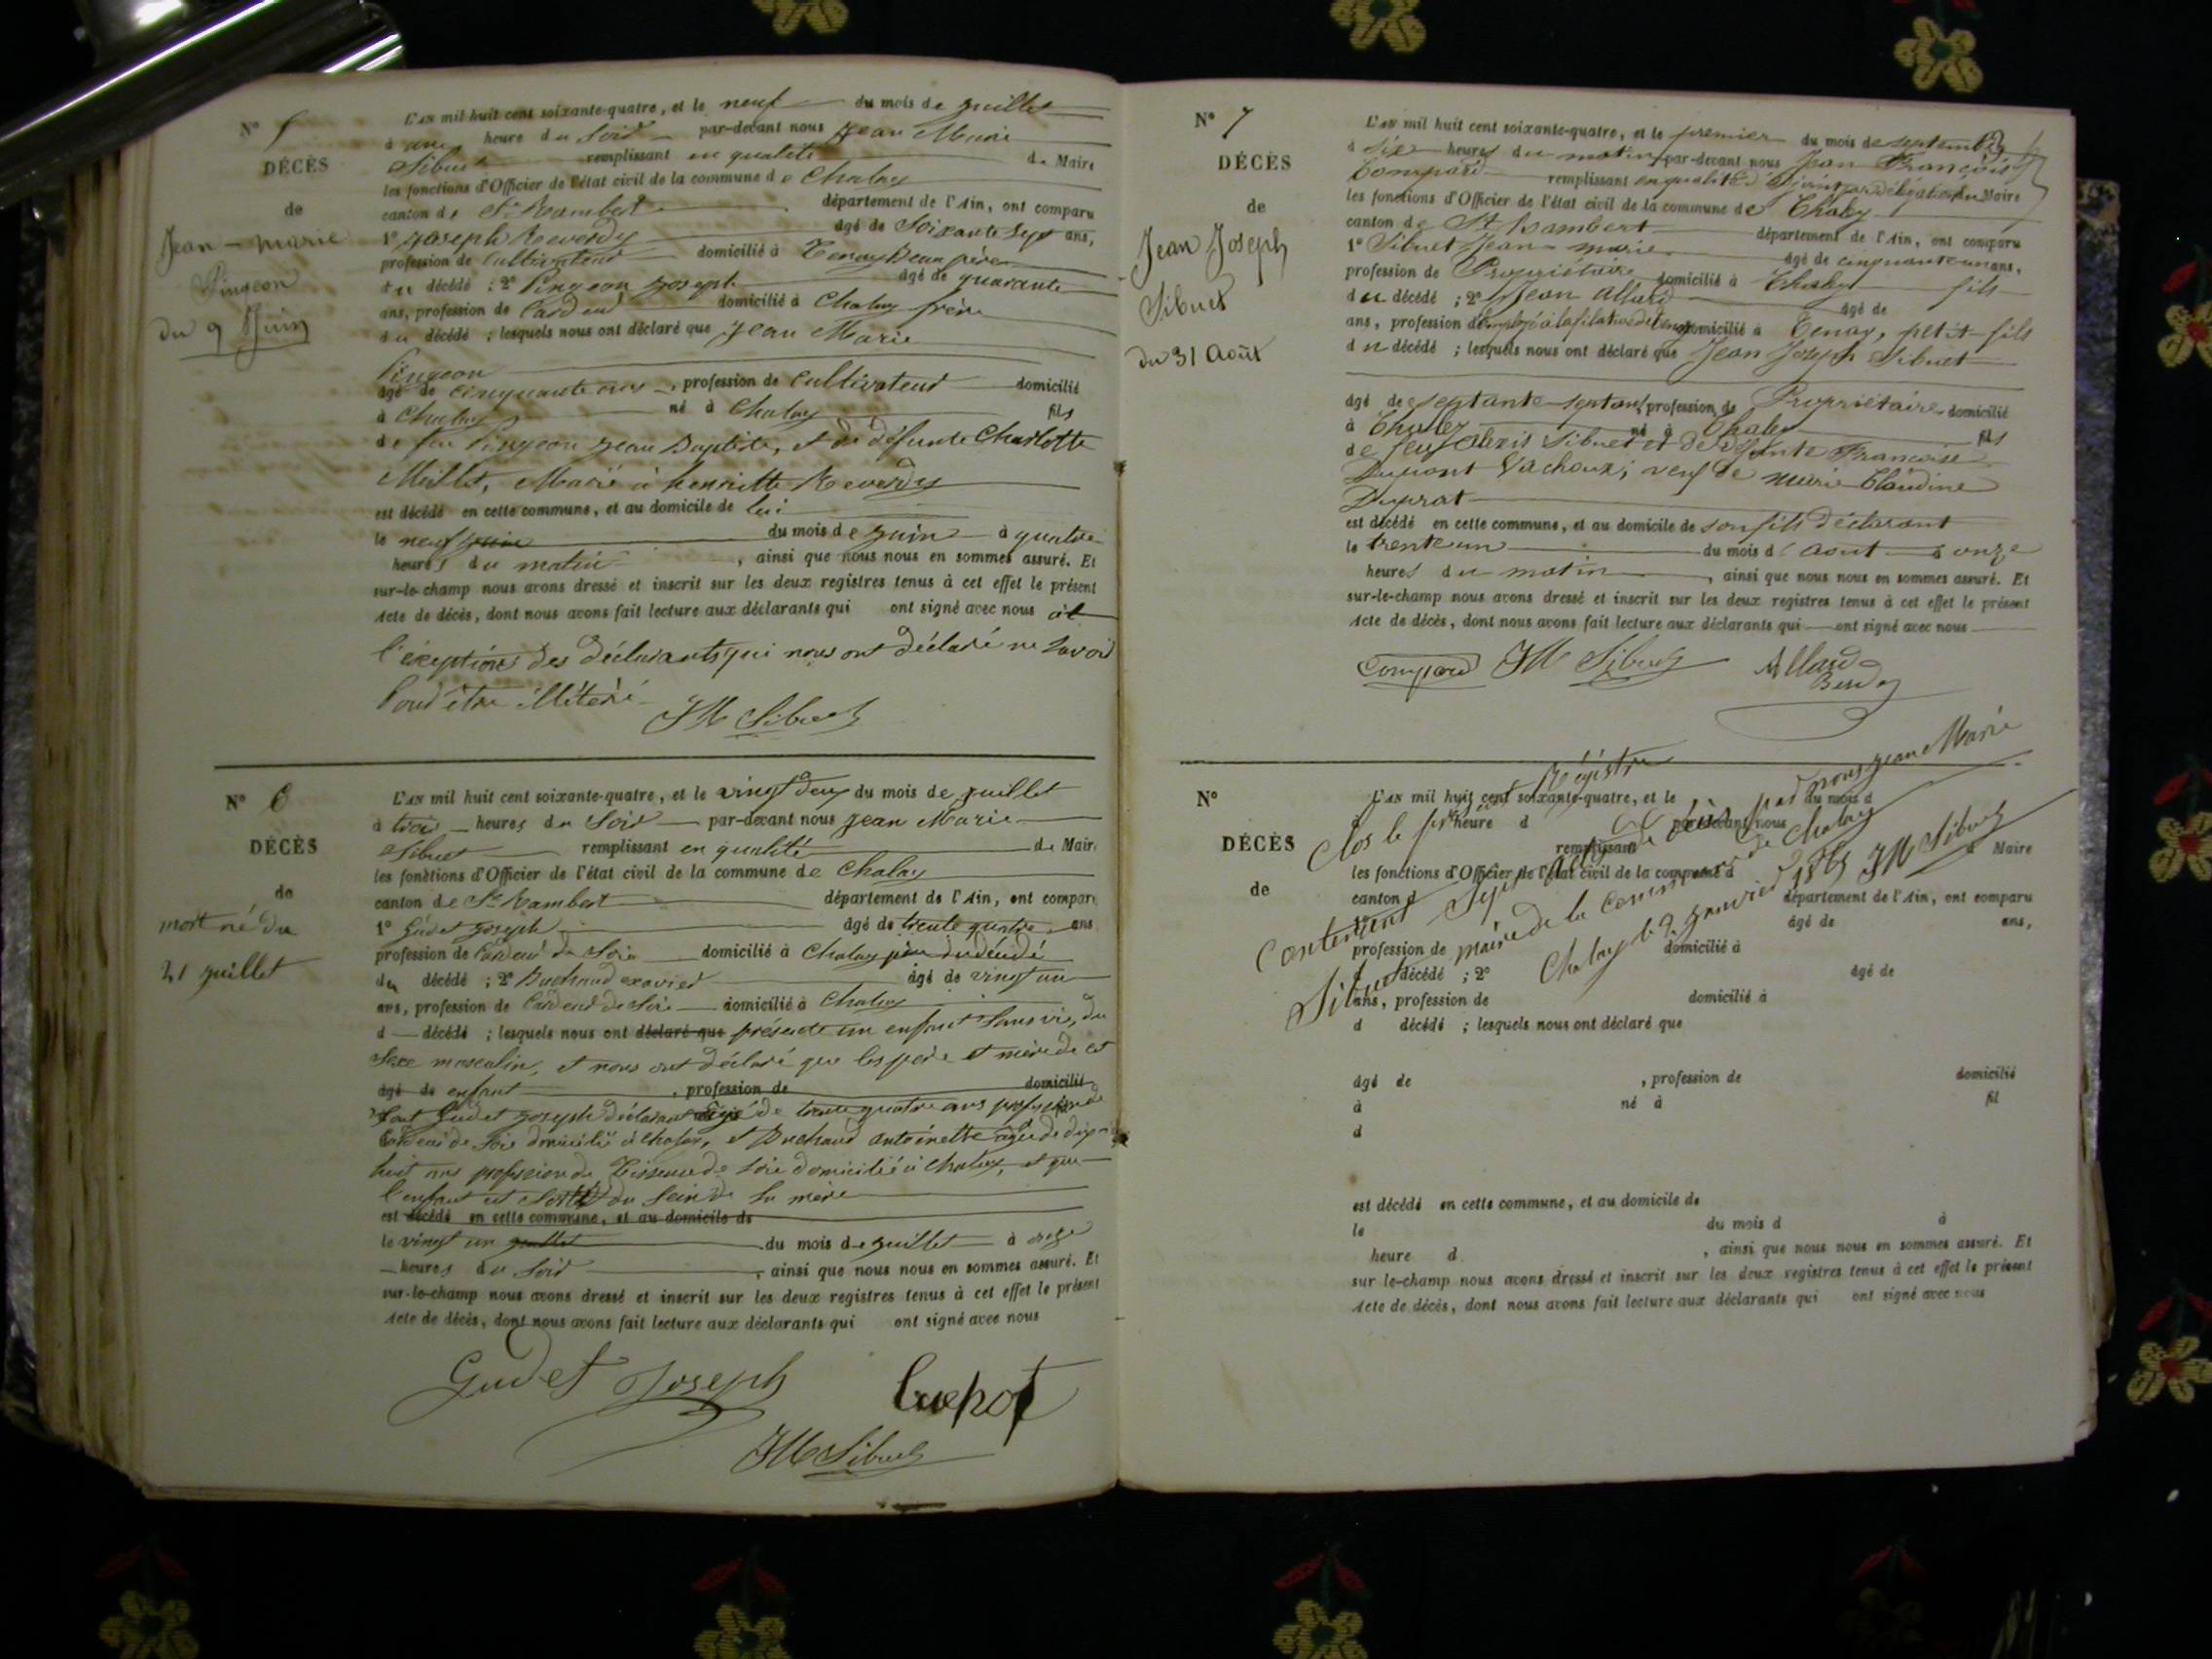 N° 5
DÉCÈS
de
Jean-marie
Pingeon
du 9 Juin
L'AN mil huit cent soixante-quatre, et le neuf du mois de juillet
à une heure du Soir par-devant nous Jean Marie
Sibuet remplissant en qualité de Maire
les fonctions d'Officier de l'état civil de la commune de Chaley
canton de St Rambert département de l'Ain, ont comparu
1° Joseph Reverdy âgé de Soixante sept ans,
profession de Cultivateur domicilié à Tenay Beau père
du décédé ; 2° Pingeon Joseph âgé de quarante
ans, profession de Cardeur domicilié à Chaley frère
du décédé ; lesquels nous ont déclaré que Jean Marie
Pingeon
âgé de cinquante ans, profession de Cultivateur domicilié
à Chaley né à Chaley fils
de feu Pingeon Jean Baptiste, et de défunte Charlotte
Millet, Marié à henriette Reverdy
est décédé en cette commune, et au domicile de lui
le neuf juin du mois de juin à quatre
heures du matin, ainsi que nous nous en sommes assuré. Et
sur-le-champ nous avons dressé et inscrit sur les deux registres tenus à cet effet le présent
Acte de décès, dont nous avons fait lecture aux déclarants qui ont signé avec nous à
l'éxeption des déclarants qui nous ont déclaré ne savoir
Pour être illitéré
JM Sibuet
N° 6
DÉCÈS
de
mort né du
21 juillet
L'AN mil huit cent soixante-quatre, et le vingt deux du mois de juillet
à trois heures du Soir par-devant nous Jean Marie
Sibuet remplissant en qualité de Maire
les fonctions d'Officier de l'état civil de la commune de Chaley
canton de St Rambert département de l'Ain, ont comparu
1° Gudet Joseph âgé de trente quatre ans
profession de Cardeur de Soie domicilié à Chaley père du décédé
du décédé ; 2° Buchaud exavier âgé de vingt un
ans, profession de Cardeur de Soie domicilié à Chaley
d décédé ; lesquels nous ont déclaré que présenté un enfant Sans vie, du
Sexe masculin, et nous ont déclaré que les père et mère de cet
âgé de enfant, profession de domicilié
Sont Gudet Joseph déclarant âgé de trente quatre ans profession de
Cardeur de Soie domicilié à Chaley, et Buchaud antoinette âgée de dix
huit ans profession de Tisseuse de Soie domicilié à Chaley, et que
l'enfant est Sorti du Sein de Sa mère
est décédé en cette commune, et au domicile de
le vingt un juillet du mois de juillet à onze
heures du Soir, ainsi que nous nous en sommes assuré. Et
sur-le-champ nous avons dressé et inscrit sur les deux registres tenus à cet effet le présent
Acte de décès, dont nous avons fait lecture aux déclarants qui ont signé avec nous
Gudet Joseph
JM Sibuet
N° 7
DÉCÈS
de
Jean Joseph
Sibuet
du 31 Août
L'AN mil huit cent soixante-quatre, et le premier du mois de septembre
à six heures du matin par-devant nous Jean François
Compard remplissant en qualité d'adjoint par délégation du Maire
les fonctions d'Officier de l'état civil de la commune de Chaley
canton de St Rambert département de l'Ain, ont comparu
1° Sibuet Jean marie âgé de cinquante un ans,
profession de Propriétaire domicilié à Chaley fils
du décédé ; 2° Jean Allard âgé de
ans, profession d'employé à la filature de Tenay domicilié à Tenay, petit-fils
du décédé ; lesquels nous ont déclaré que Jean Joseph Sibuet
âgé de septante-sept ans, profession de Propriétaire domicilié
à Chaley né à Chaley fils
de feu Alexis Sibuet et de défunte Françoise
Dumont Vachoux; veuf de marie Claudine
Duprat
est décédé en cette commune, et au domicile de son fils déclarant
le trente un du mois d'Août à onze
heures du matin, ainsi que nous nous en sommes assuré. Et
sur-le-champ nous avons dressé et inscrit sur les deux registres tenus à cet effet le présent
Acte de décès, dont nous avons fait lecture aux déclarants qui ont signé avec nous
Compard JM Sibuet Allard
N°
DÉCÈS
de
L'AN mil huit cent soixante-quatre, et le du mois d
heure d par-devant nous
remplissant d Maire
les fonctions d'Officier de l'état civil de la commune d
canton d département de l'Ain, ont comparu
1° âgé de ans,
profession de domicilié à
d décédé ; 2° âgé de
ans, profession de domicilié à
d décédé ; lesquels nous ont déclaré que
âgé de , profession de domicilié
à né à fil
d
est décédé en cette commune, et au domicile de
le du mois d à
heure d , ainsi que nous nous en sommes assuré. Et
sur le-champ nous avons dressé et inscrit sur les deux registres tenus à cet effet le présent
Acte de décès, dont nous avons fait lecture aux déclarants qui ont signé avec nous
Clos le prt Régistre
Contenant Sept actes de décès par nous Jean Marie
Sibuet maire de la Commune de Chaley
Chaley le 2 janvier 1865 JM Sibuet